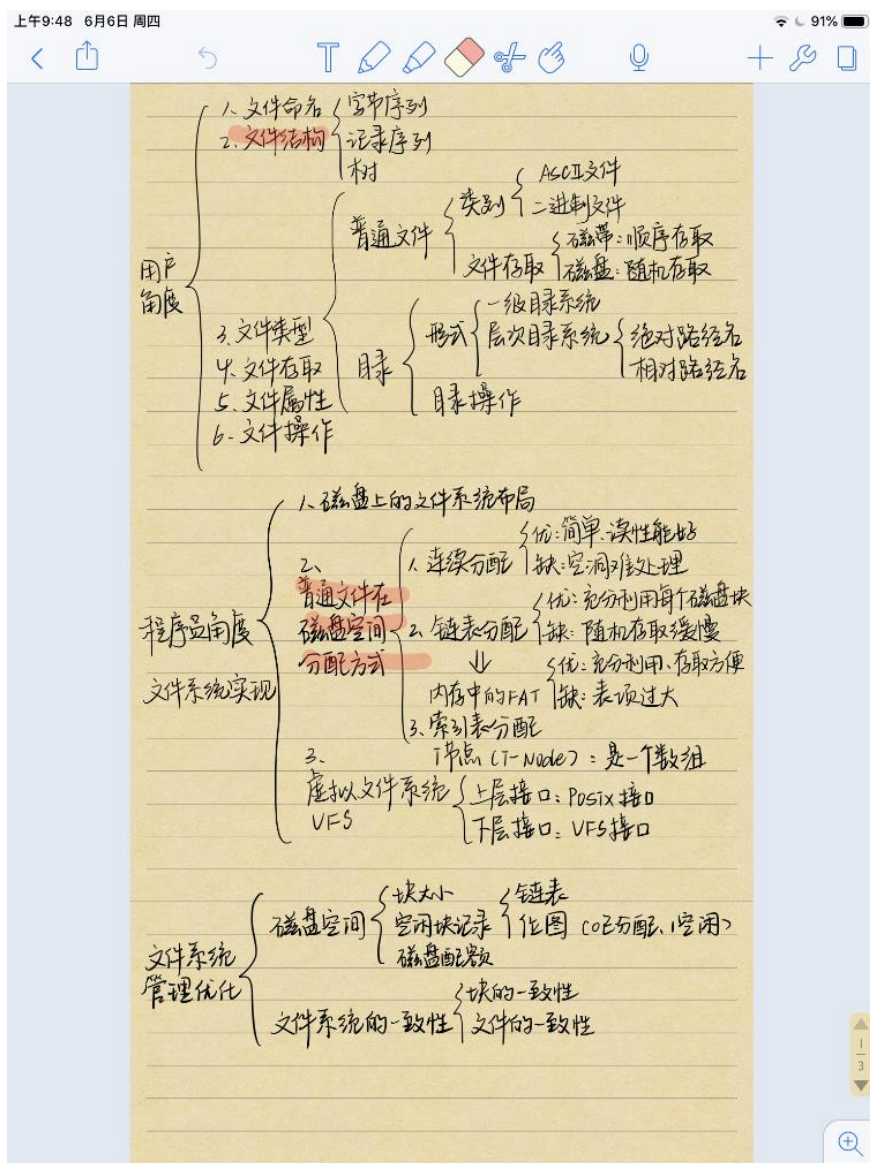 上午9:48 6月6日 周四
91%
1、文件命名
2、文件结构
字节序列
记录序列
树
用户
角度
3、文件类型
4、文件存取
5、文件属性
6、文件操作
普通文件
类别
ASCII文件
二进制文件
文件存取
磁带：顺序存取
磁盘：随机存取
目录
形式
一级目录系统
层次目录系统
绝对路径名
相对路径名
目录操作
程序员角度
文件系统实现
1、磁盘上的文件系统布局
2、
普通文件在
磁盘空间
分配方式
1、连续分配
优：简单、读性能好
缺：空洞难处理
2、链表分配
优：充分利用每个磁盘块
缺：随机存取缓慢
⇓
内存中的FAT
优：充分利用、存取方便
缺：表项过大
3、索引表分配
I节点（I-Node）：是一个数组
3、
虚拟文件系统
VFS
上层接口：POSIX接口
下层接口：VFS接口
文件系统
管理优化
磁盘空间
块大小
空闲块记录
链表
位图（0已分配、1空闲）
磁盘配额
文件系统的一致性
块的一致性
文件的一致性
1
3